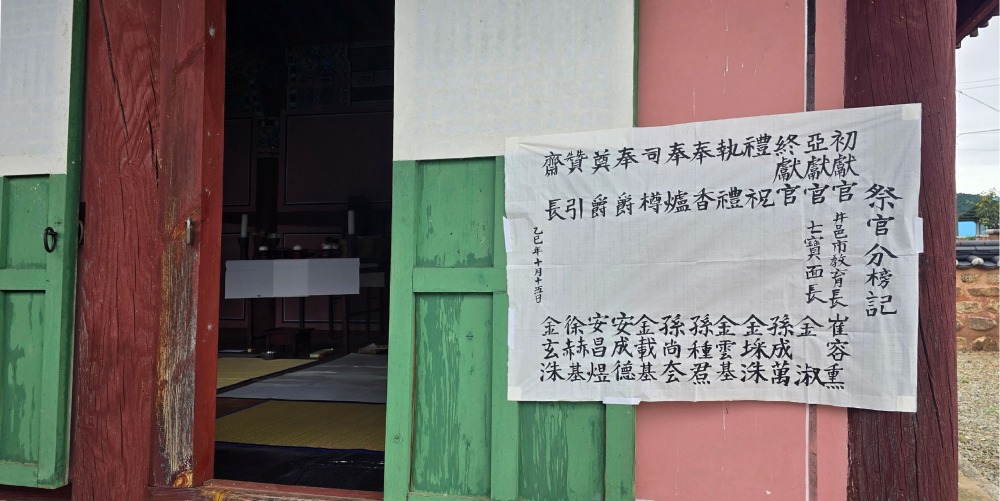 祭官分榜記
初獻官 井邑市教育長 崔容熏
亞獻官 七寶面長 金淑
終獻官 孫成萬
禮祝 金埰洙
執禮 金雲基
奉香 孫種焄
奉爐 孫尚会
司樽 金載基
奉爵 安成德
奠爵 安昌煜
贊引 徐赫基
齋長 金玄洙
乙巳年十月十五日